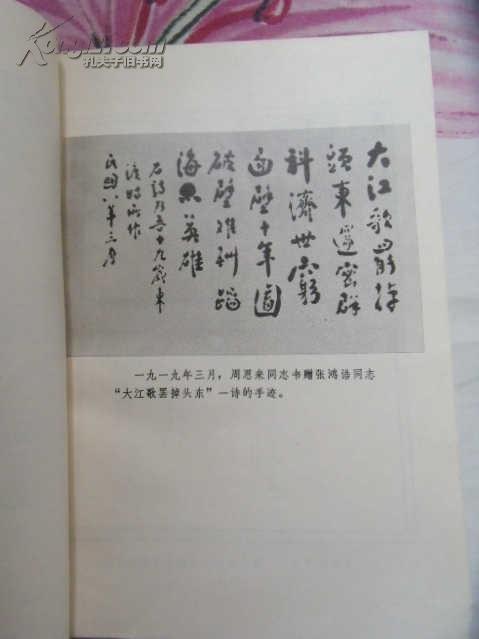 KongfZ.com
孔夫子旧书网
大江歌罷掉
頭東邃密群
科濟世窮
面壁十年圖
破壁难酬蹈
海亦英雄
右詩乃吾十九歲東
渡時所作
民國八年三月
一九一九年三月，周恩来同志书赠张鸿诰同志
“大江歌罢掉头东”一诗的手迹。